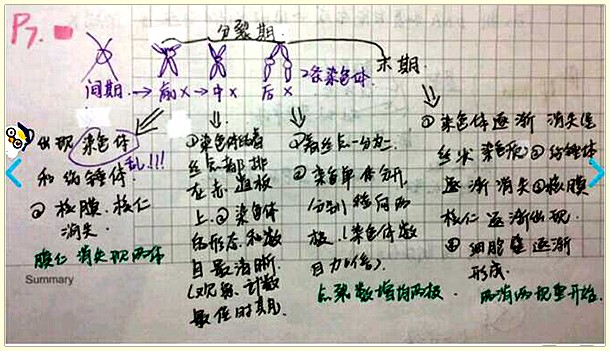 P7.
分裂期
间期 → 前X → 中X 后X 2条染色体 末期
① 出现染色体
和纺锤体 乱!!!
② 核膜.核仁
消失
膜仁消失现两体
①染色体的着
丝点都排
在赤道板
上.②染色体
的形态和数
目最清晰.
(观察、计数
最佳时期)
①着丝点一分为二.
②染色单体分开
分别移向两
极.(染色体数
目加倍)
点裂数增均两极.
①染色体逐渐消失变
丝状染色质②纺锤体
逐渐消失③核膜
核仁逐渐出现.
④细胞壁逐渐
形成.
两消两现重开始.
Summary